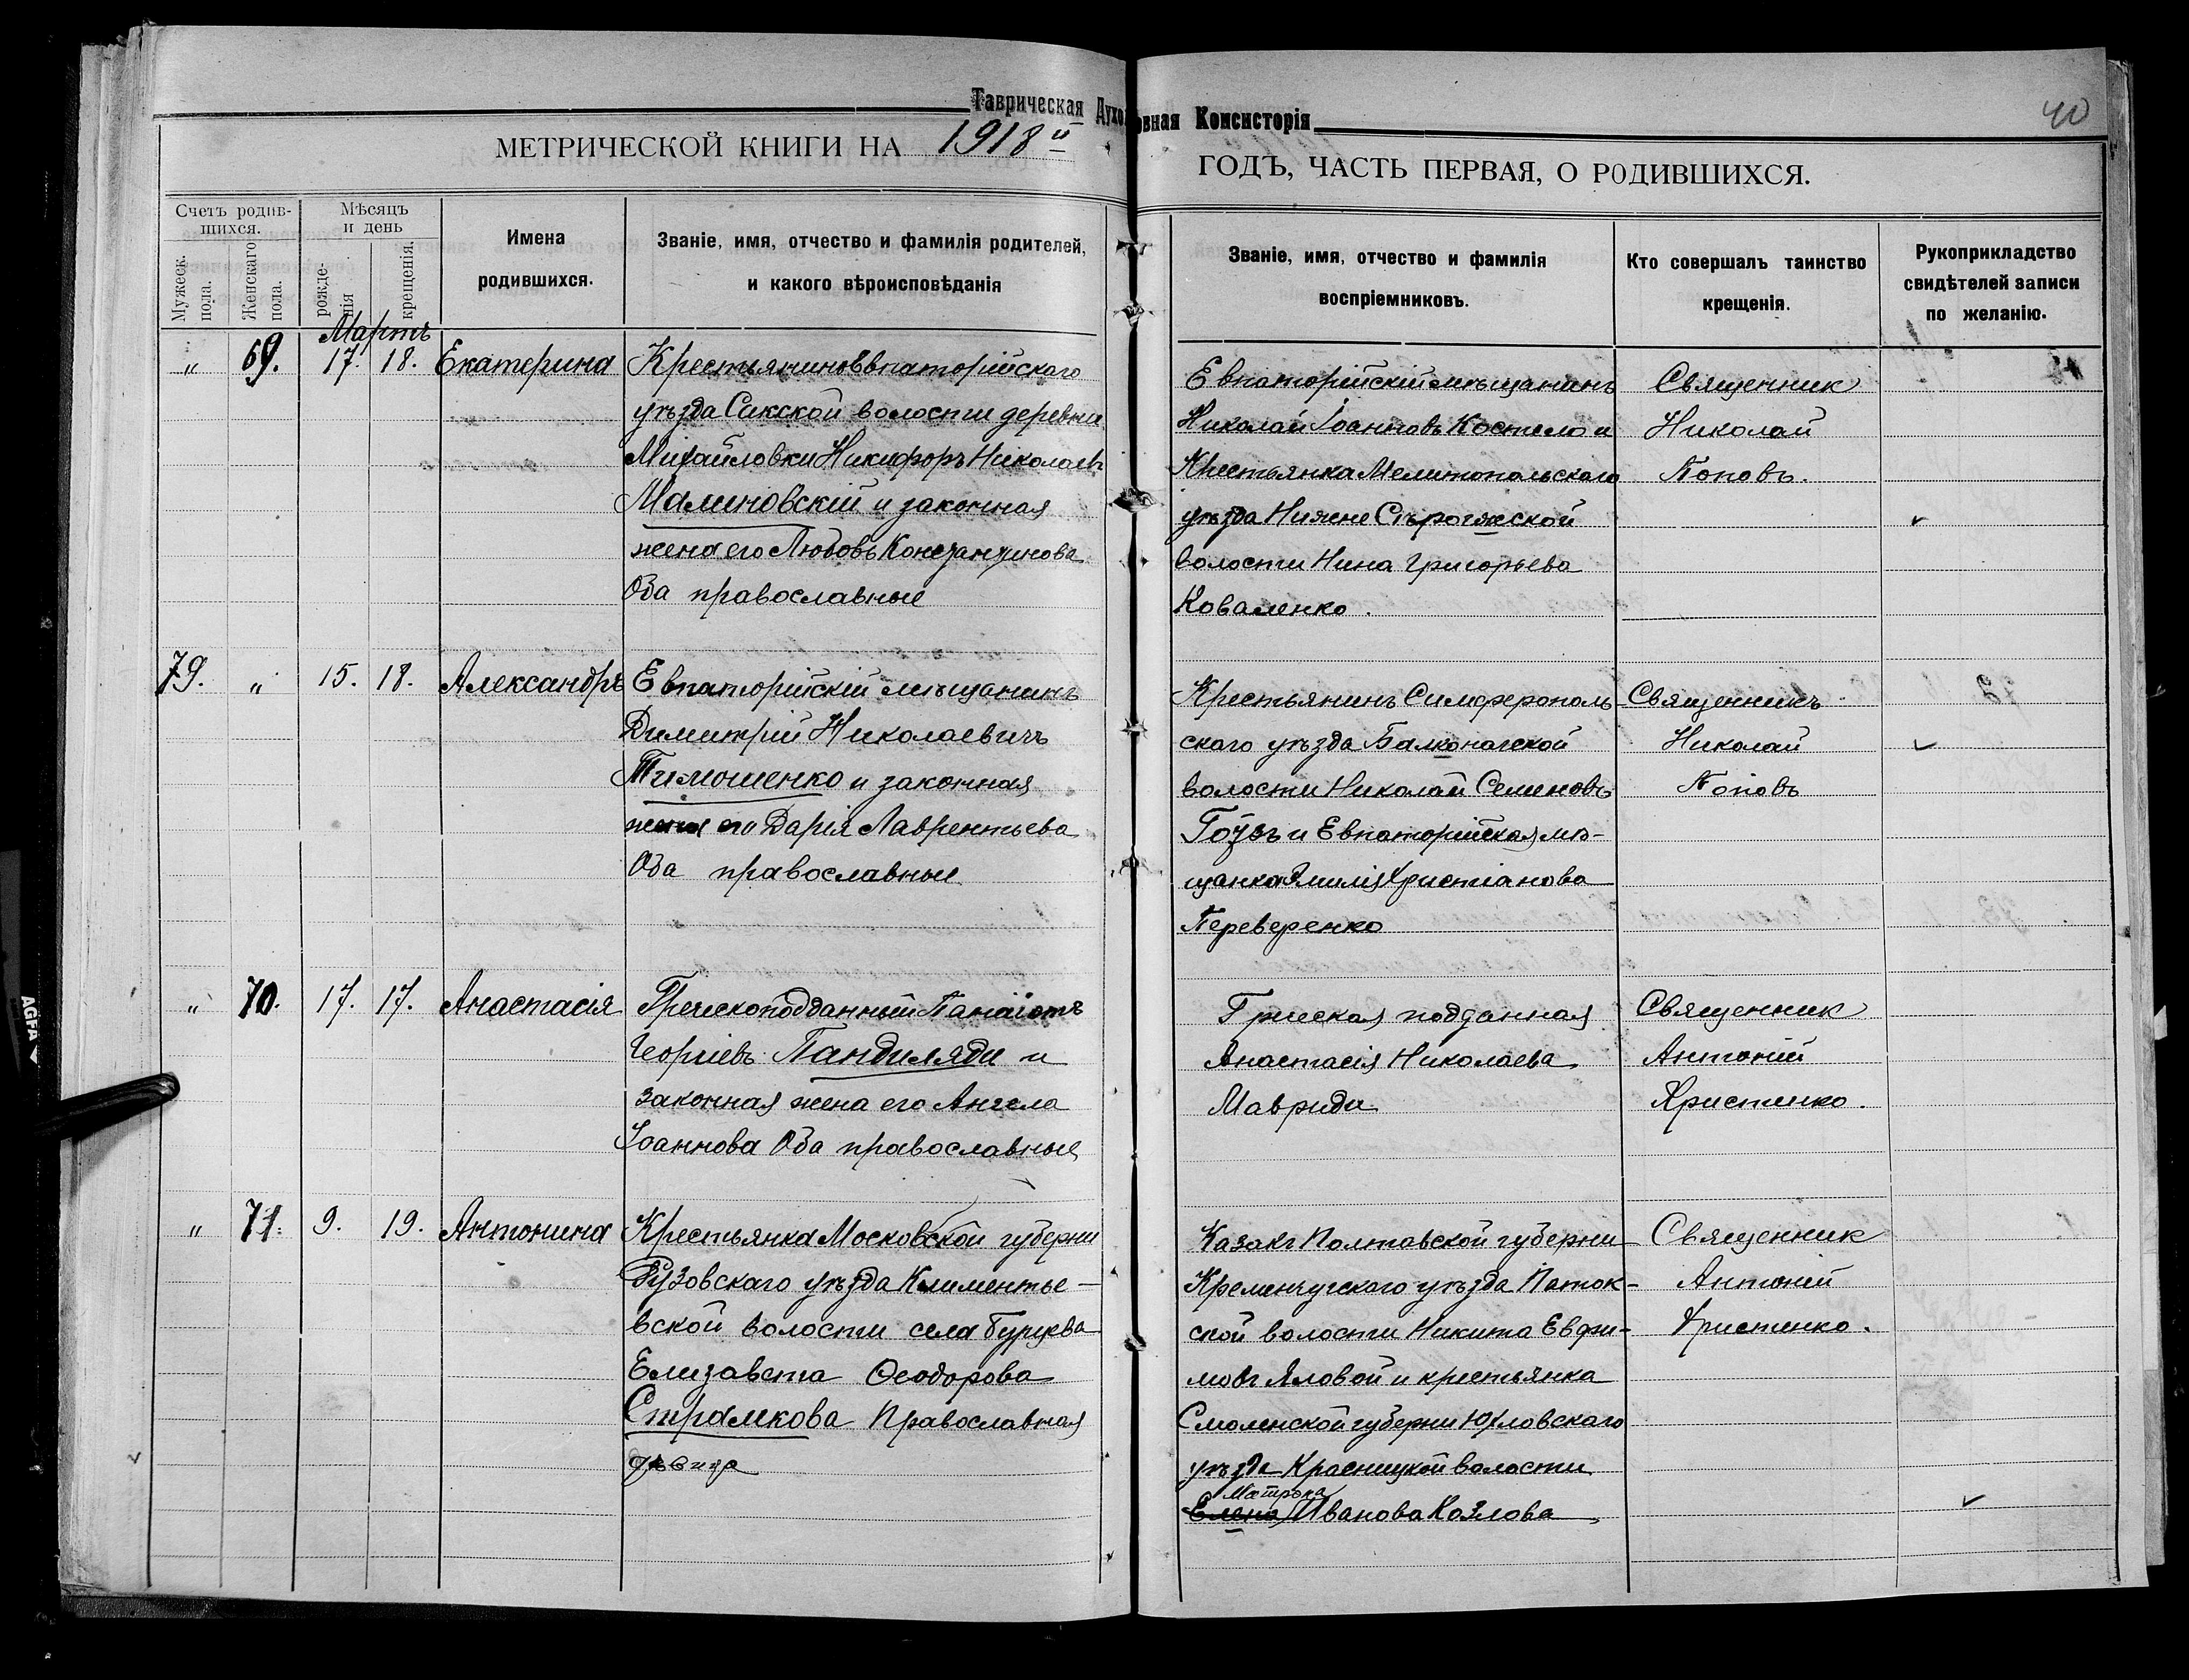 Таврическая Духовная Консисторія
40
МЕТРИЧЕСКОЙ КНИГИ НА 1918й
ГОДЪ, ЧАСТЬ ПЕРВАЯ, О РОДИВШИХСЯ.
Счетъ родив-
шихся.
Мужеск.
пола.
Женскаго
пола.
Мѣсяцъ
и день
рожде-
нія
крещенія.
Имена
родившихся.
Званіе, имя, отчество и фамилія родителей,
и какого вѣроисповѣданія
Званіе, имя, отчество и фамилія
воспріемниковъ.
Кто совершалъ таинство
крещенія.
Рукоприкладство
свидѣтелей записи
по желанію.
Мартъ
" 69. 17. 18. Екатерина
Крестьянинъ Евпаторійскаго
уѣзда Сакской волости деревни
Михайловки Никифоръ Николаевъ
Малиновскій и законная
жена его Любовь Константинова
Оба православные
Евпаторійскій мѣщанинъ
Николай Іоанновъ Костело и
Крестьянка Мелитопольскаго
уѣзда Нижне Сѣрогожской
волости Нина Григорьева
Коваленко.
Священник
Николай
Поповъ.
79. " 15. 18. Александръ
Евпаторійскій мѣщанинъ
Димитрій Николаевичъ
Тимошенко и законная
жена его Дарія Лаврентьева
Оба православные
Крестьянинъ Симферополь-
скаго уѣзда
волости Николай Семеновъ
и Евпаторійская мѣ-
щанка Эмилія Христіанова
Переверенко
Священникъ
Николай
Поповъ
" 70. 17. 17. Анастасія
Греческоподданный Панаіотъ
Георгіевъ Пандиляди и
законная жена его Ангела
Іоаннова Оба православные
Греческая подданная
Анастасія Николаева
Мавриди
Священник
Антоній
Христенко.
" 71. 9. 19. Антонина
Крестьянка Московской губерни
Рузовскаго уѣзда Климентье-
вской волости села
Елизавета Ѳеодорова
Страмкова Православная
дѣвица
Казакъ Полтавской губерни
Кременчугскаго уѣзда Поток-
ской волости Никита Евфи-
мовъ Яловой и крестьянка
Смоленской губерни Юхновскаго
уѣзда Красницкой волости
Матрона
Елена Иванова Козлова
Священник
Антоній
Христенко.
AGFA